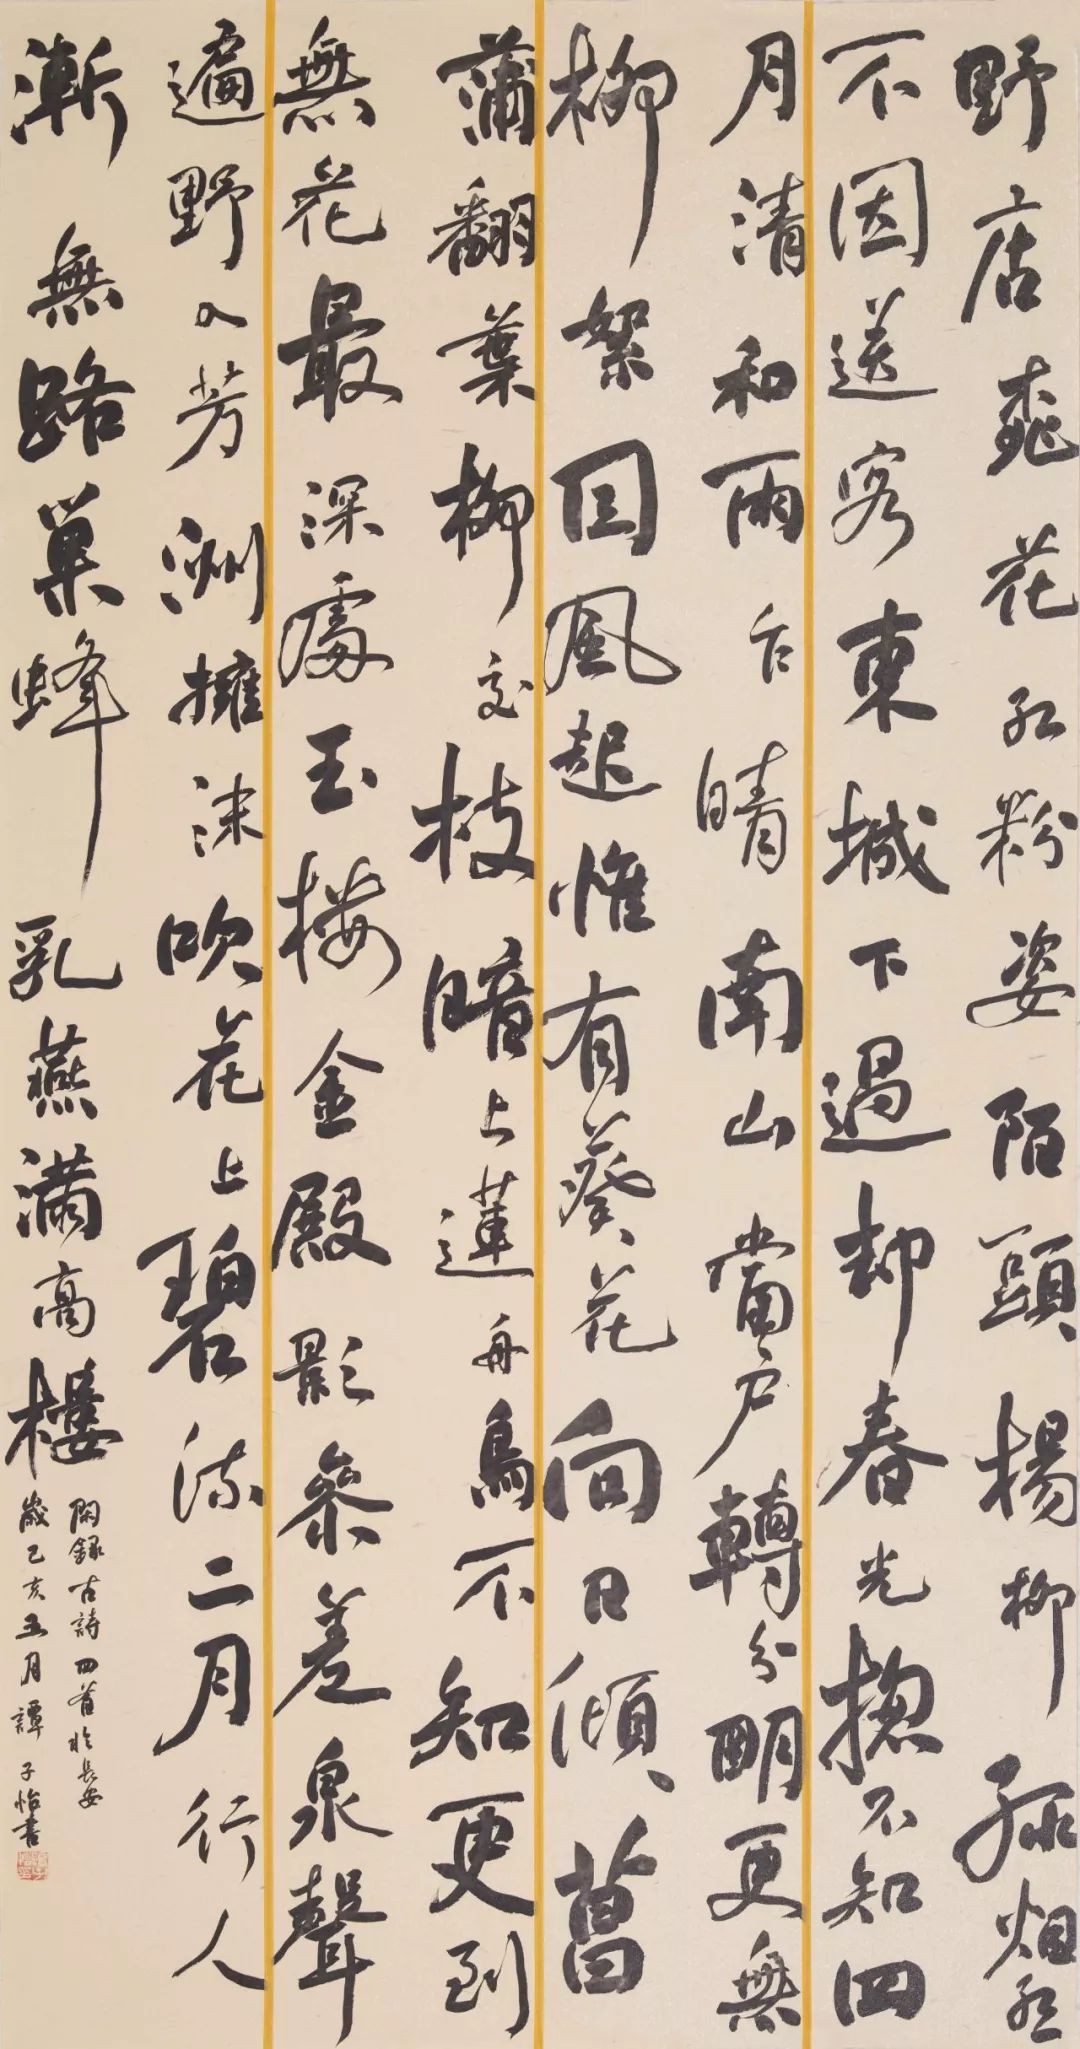 野店桃花紅粉姿陌頭楊柳綠烟絲
不因送客東城下過却春光揔不知四
月清和雨乍晴南山當户轉分明更無
柳絮因風起惟有葵花向日傾菖
蒲翻葉柳交枝暗上蓮舟鳥不知更到
無花最深處玉樓金殿影參差泉聲
遍野入芳洲擁沫吹花上碧流二月行人
漸無路巢蜂乳燕滿高樓
閑錄古詩四首於長安
歲己亥五月譚子怡書